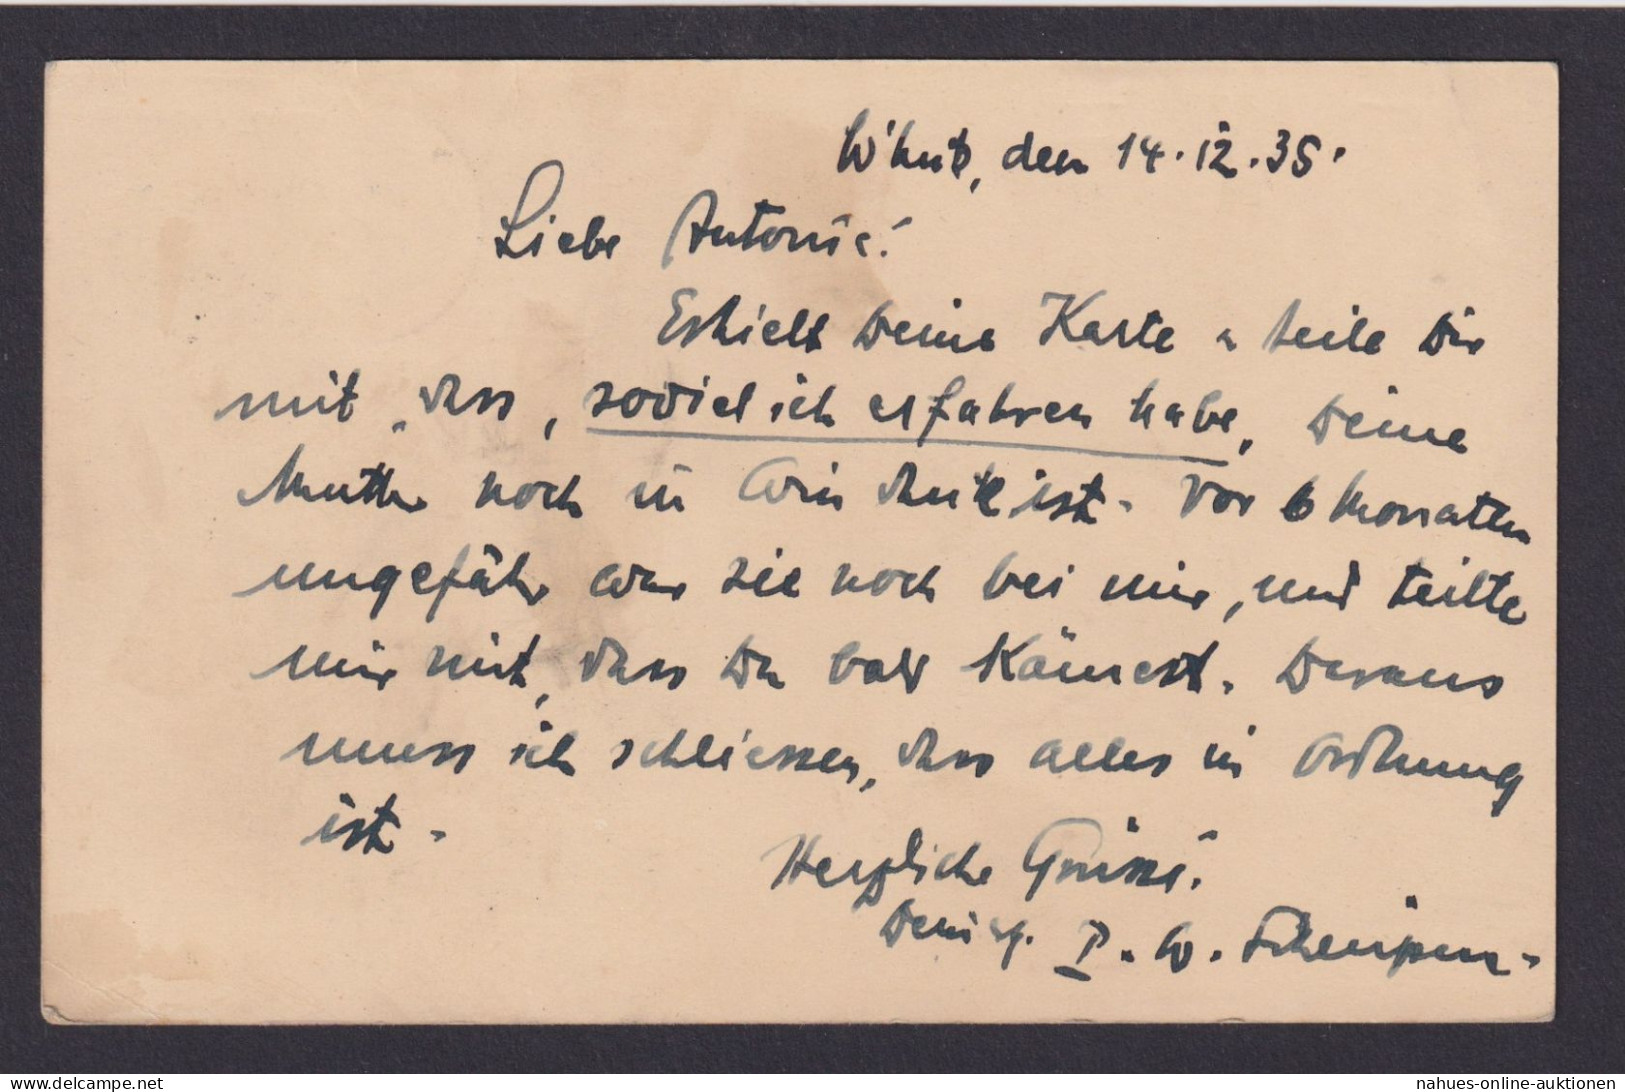 W'huk, den 14.12.35.
Liebe Antonie!
Erhielt Deine Karte u teile Dir
mit, dass, soviel ich erfahren habe, Deine
Mutter noch in Windhuk ist. Vor 6 Monaten
ungefähr war sie noch bei mir, und teilte
mir mit, dass Du bald kämest. Daraus
muss ich schliessen, dass alles in Ordnung
ist.
Herzliche Grüsse.
P. W.
nahues-online-auktionen
nahues-online-auktionen